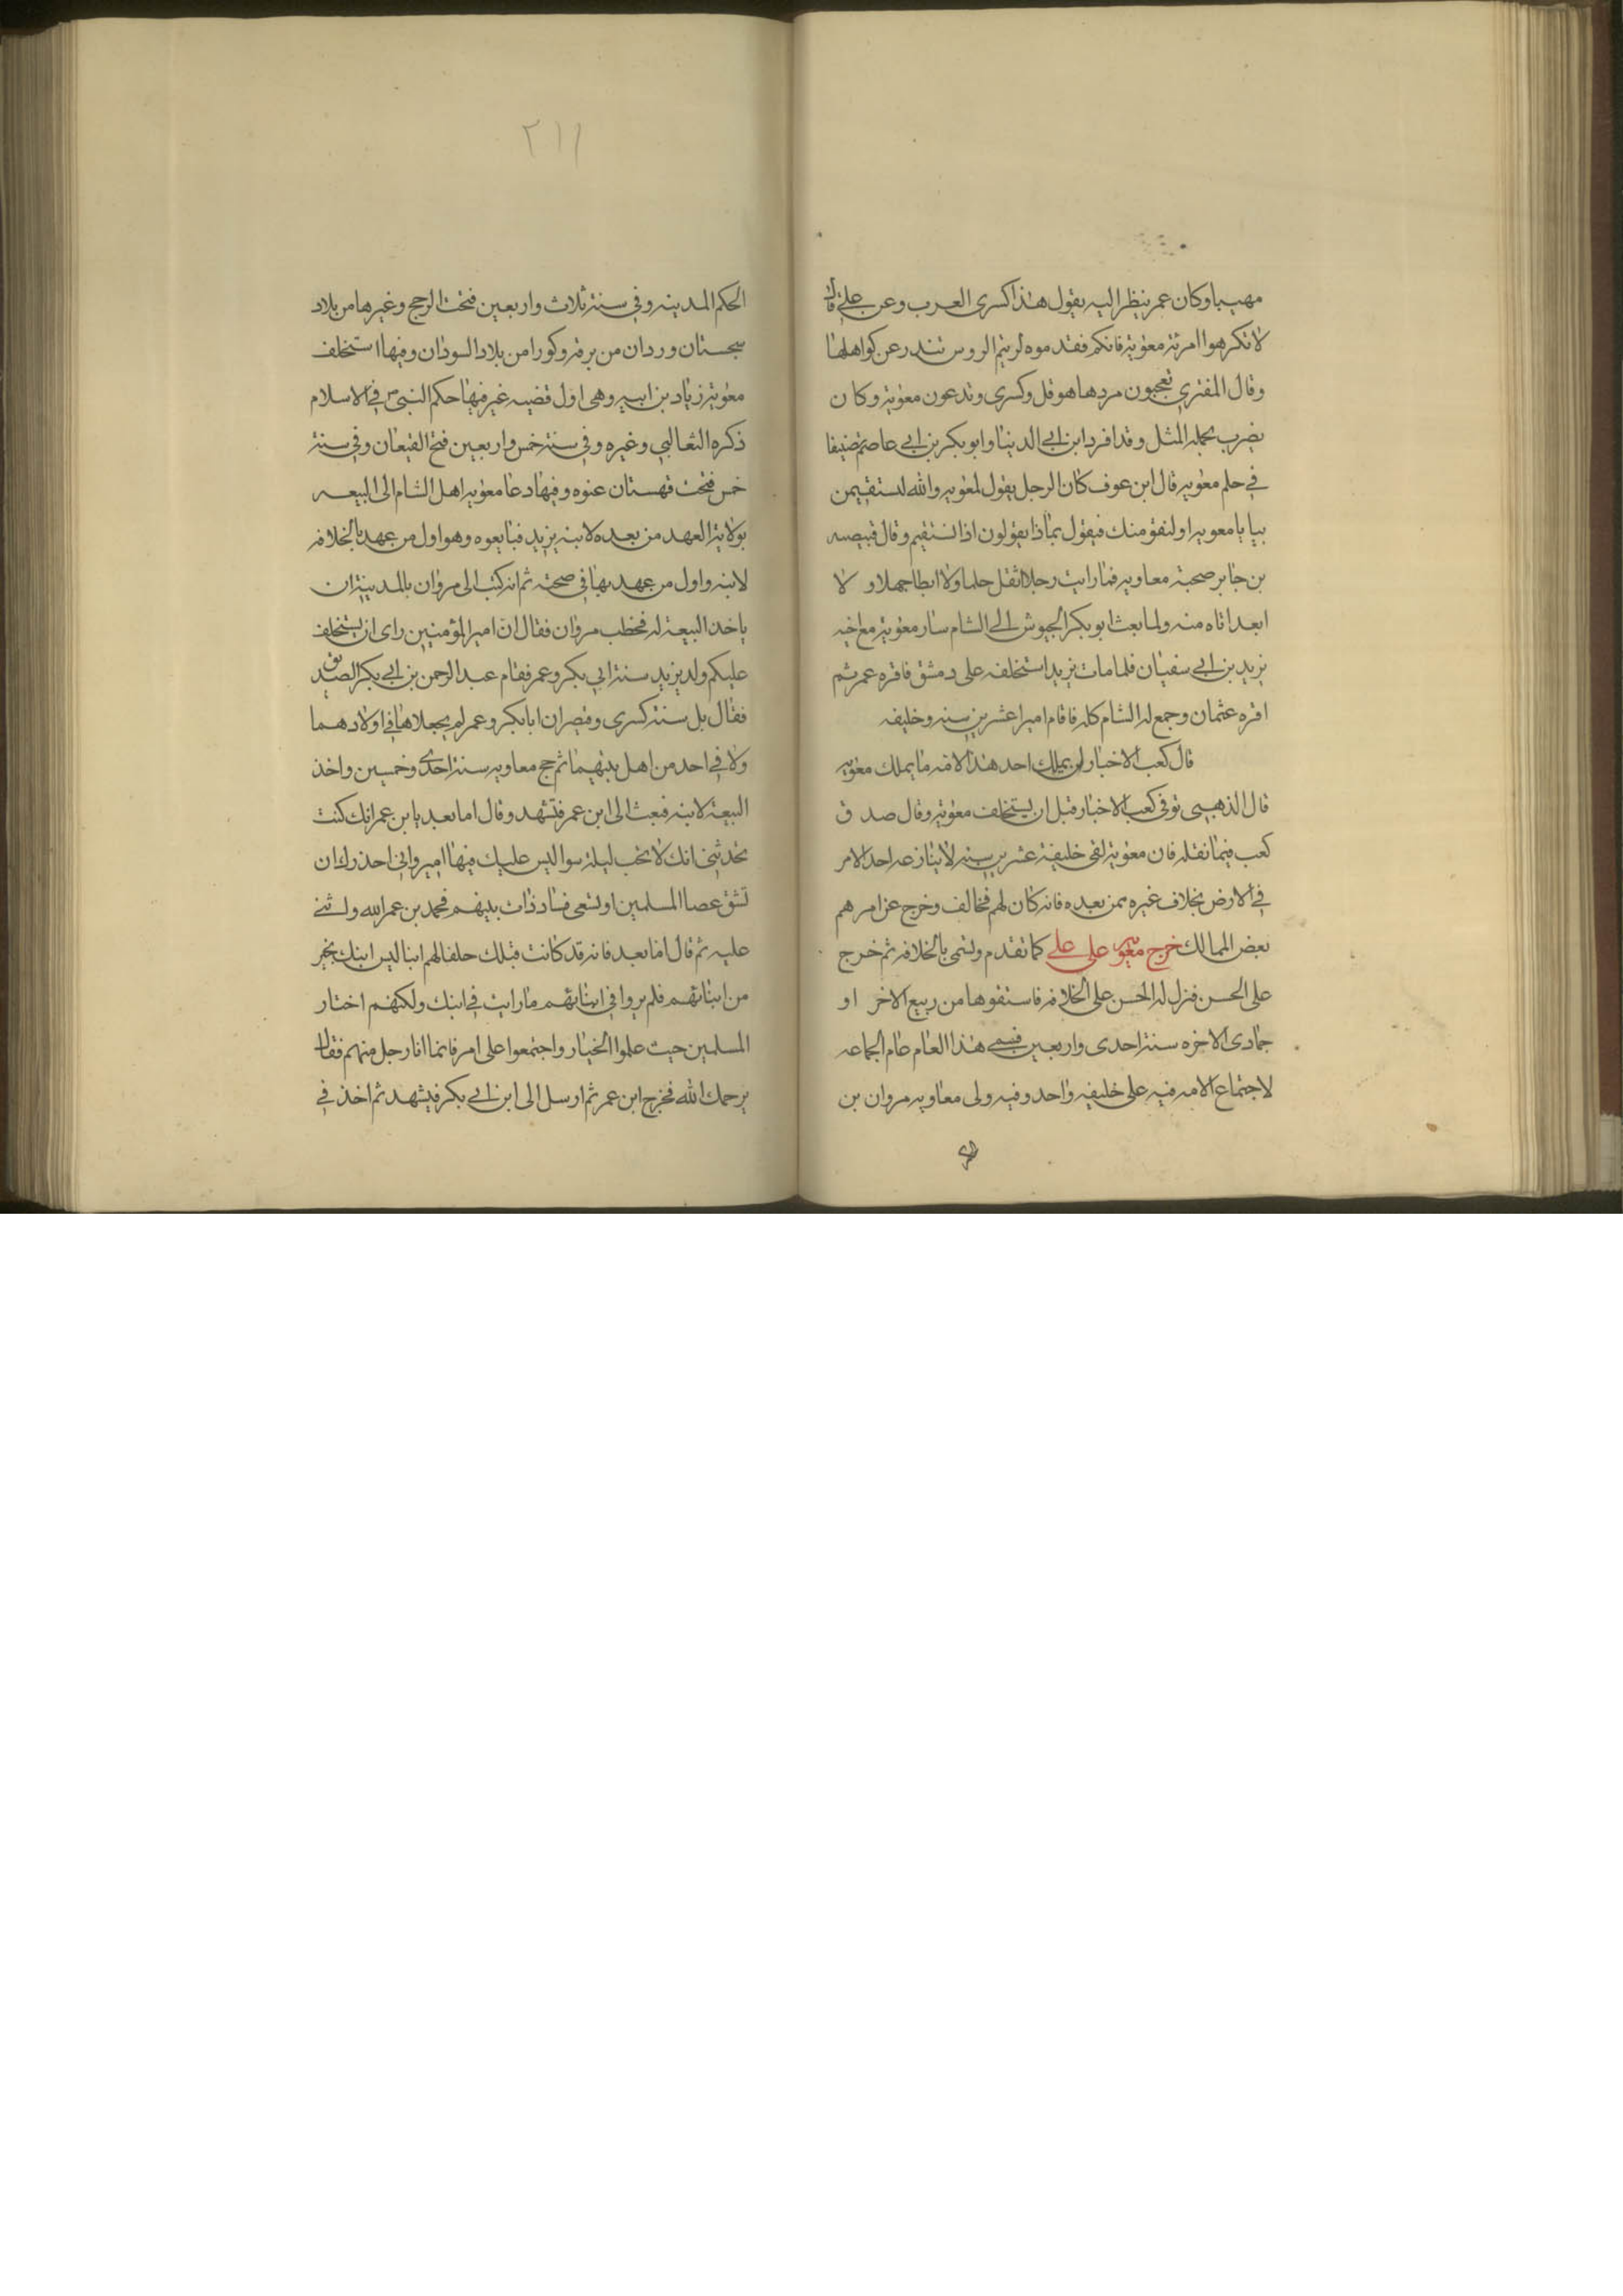 مهيبا وكان عمر ينظر اليه يقول هذا كسرى العرب وعن علي قال
لا تكرهوا امرة معوية فانكم فقدموه لريتم الروس تندر عن كواهلها
وقال المقبري تعجبون من دها هوقل وكسرى وتدعون معوية وكان
يضرب بحمله المثل وقد افرد ابن ابي الدنيا وابو بكر بن ابي عاصم تصنيفا
في حلم معويه قال ابن عوف كان الرجل يقول لمعويه والله لتستقيمن
بيا يا معويه او لنقومنك فيقول بماذا يقولون اذا نستقيم وقال قبيصه
بن جابر صحبة معاويه فما رايت رجلا اثقل حلما ولا ابطا جهلا و لا
ابعد اناه منه ولما بعث ابو بكر الجيوش الى الشام سار معوية مع اخيه
يزيد بن ابي سفيان فلما مات يزيد استخلفه على دمشق فاقره عمر ثم
اقره عثمان وجمع له الشام كله فاقام اميرا عشرين سنه وخليفه
قال كعب الاخبار لن يملك احد هذه الامه ما يملك معويه
قال الذهبي توفى كعب الاخبار قبل ان يستخلف معوية وقال صدق
كعب فيما نقله فان معوية لقى خليفة عشرين سنه لا ينازعه احد الامر
في الارض بخلاف غيره ممن بعده فانه كان لهم مخالف وخرج عن امرهم
بعض الممالك خرج معويه على علي كما تقدم وتسمى بالخلافه ثم خرج
على الحسن فنزل له الحسن على الخلافه فاستقوها من ربيع الاخر او
جمادى الاخره سنة احدى واربعين فسمى هذا العام عام الجماعه
لاجتماع الامه فيه على خليفه واحد وفيه ولى معاويه مروان بن
٢١١
الحكم المدينه وفي سنة ثلاث واربعين فتحت الرحج وغيرها من بلاد
سجستان وردان من برقه وكورا من بلاد السودان وفيها استخلف
معوية زياد بن ابيه وهى اول قضيه غير فيها حكم النبي في الاسلام
ذكره الثعالبي وغيره وفي سنة خمس واربعين فتح القيعان وفي سنة
خمس فتحت قهستان عنوه وفيها دعا معويه اهل الشام الى البيعه
بولاية العهد من بعده لابنه يزيد فبايعوه وهو اول من عهد بالخلافه
لابنه واول من عهد بها في صحته ثم انه كتب الى مروان بالمدينة ان
ياخذ البيعة له فخطب مروان فقال ان امير المؤمنين راى ان يستخلف
عليكم ولد يزيد سنة ابي بكر وعمر فقام عبد الرحمن بن ابي بكر الصديق
فقال بل سنة كسرى وقيصر ان ابا بكر وعمر لم يجعلاها في اولادهما
ولا في احد من اهل بيتهما ثم حج معاويه سنة احدى وخمسين واخذ
البيعة لابنه فبعث الى ابن عمر فتشهد وقال اما بعد يابن عمر انك كنت
تحدثني انك لا تحب ليلة سوا ليس عليك فيها امير واني احذرك ان
تشق عصا المسلمين او تسعى فساد ذات بينهم فحمد بن عمر الله واثنى
عليه ثم قال اما بعد فانه قد كانت قبلك خلفا لهم ابنا ليس ابنك بخير
من ابنائهم فلم يروا في ابنائهم ما رايت في ابنك ولكنهم اختار
المسلمين حيث علموا الخيار واجتمعوا على امر فانما انا رجل منهم فقال
يرحمك الله فخرج ابن عمر ثم ارسل الى ابن ابي بكر فيشهد ثم اخذ في